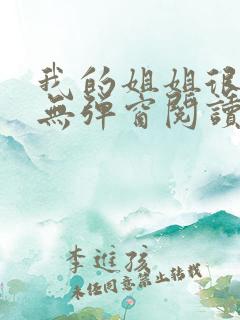 我的姐姐很
無彈窗閱讀
李進孩
未经同意禁止转载